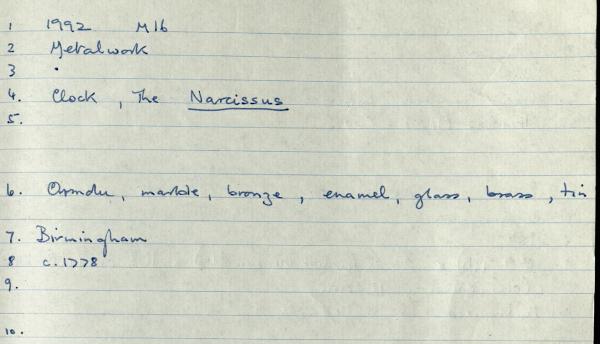 1 1992 M16
2 Metalwork
3 .
4. Clock, The Narcissus
5.
6. Ormolu, marble, bronze, enamel, glass, brass, tin
7. Birmingham
8 c.1778
9.
10.